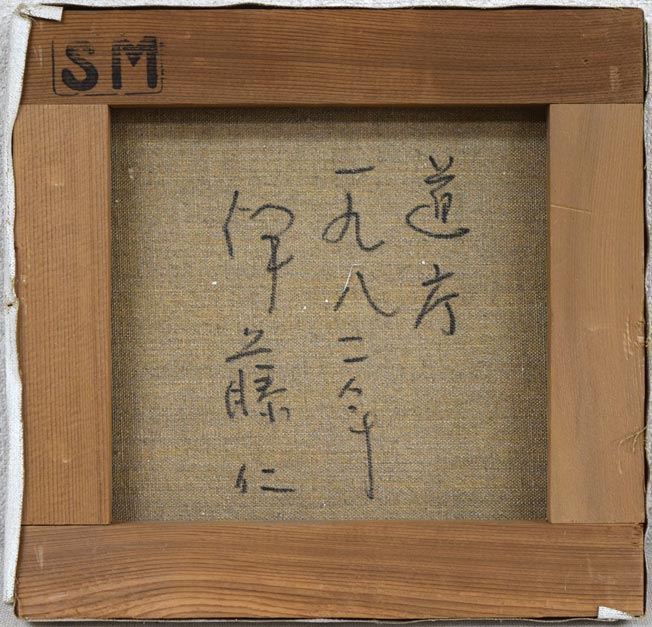 SM
道庁
一九八二年
伊藤仁